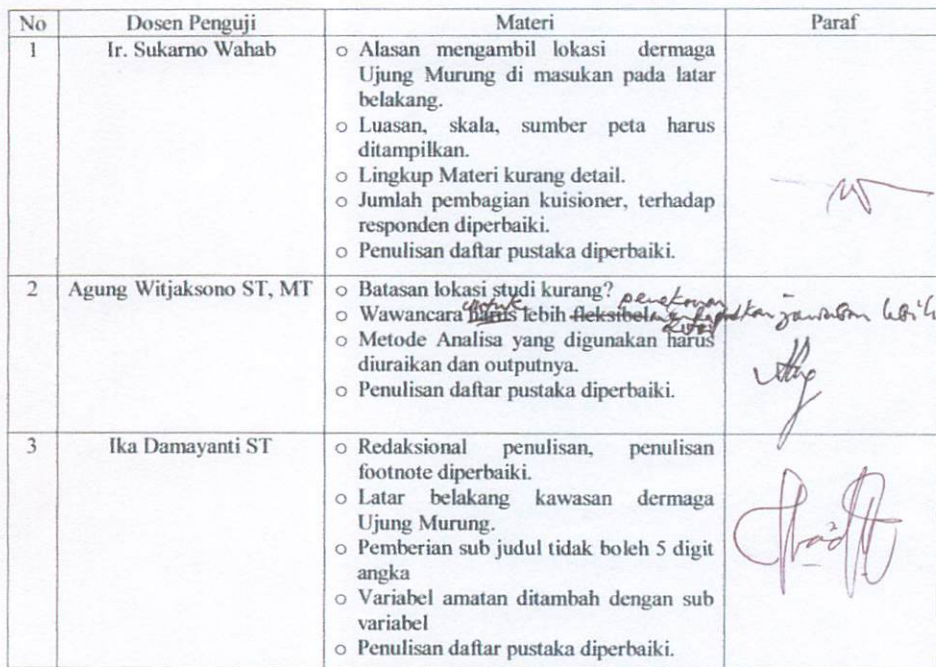 No Dosen Penguji Materi Paraf
1 Ir. Sukarno Wahab
o Alasan mengambil lokasi dermaga
Ujung Murung di masukan pada latar
belakang.
o Luasan, skala, sumber peta harus
ditampilkan.
o Lingkup Materi kurang detail.
o Jumlah pembagian kuisioner, terhadap
responden diperbaiki.
o Penulisan daftar pustaka diperbaiki.
2 Agung Witjaksono ST, MT
o Batasan lokasi studi kurang?
untuk penekanan
o Wawancara harus lebih fleksibel jawaban lebih
o Metode Analisa yang digunakan harus
diuraikan dan outputnya.
o Penulisan daftar pustaka diperbaiki.
3 Ika Damayanti ST
o Redaksional penulisan, penulisan
footnote diperbaiki.
o Latar belakang kawasan dermaga
Ujung Murung.
o Pemberian sub judul tidak boleh 5 digit
angka
o Variabel amatan ditambah dengan sub
variabel
o Penulisan daftar pustaka diperbaiki.